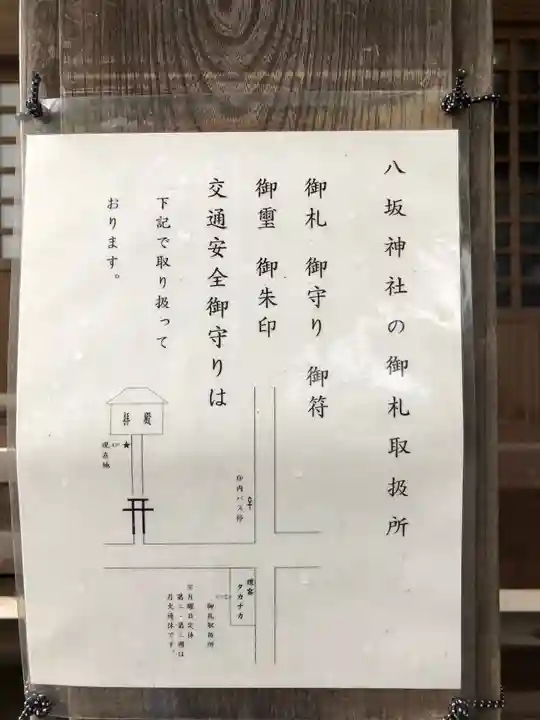 八坂神社の御札取扱所
御札 御守り 御符
御璽 御朱印
交通安全御守りは
下記で取り扱って
おります。
拝殿
★
現在地
印内バス停
タカナカ
御札取扱所
※月曜日定休
第二・第三週は
月火連休です。